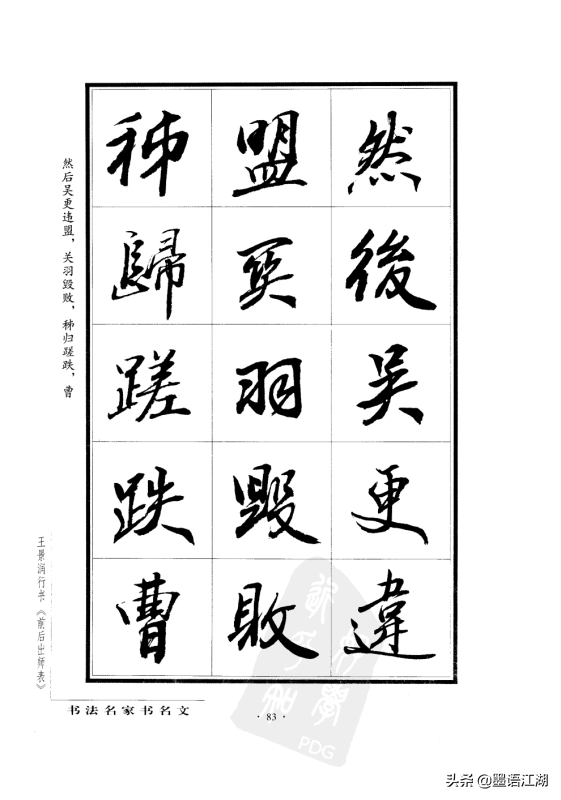 然後吴更違
盟関羽毁敗
秭歸蹉跌曹
然后吴更违盟，关羽毁败，秭归蹉跌，曹
王景润行书《前后出师表》
书法名家书名文
·83·
PDG
头条@墨语江湖